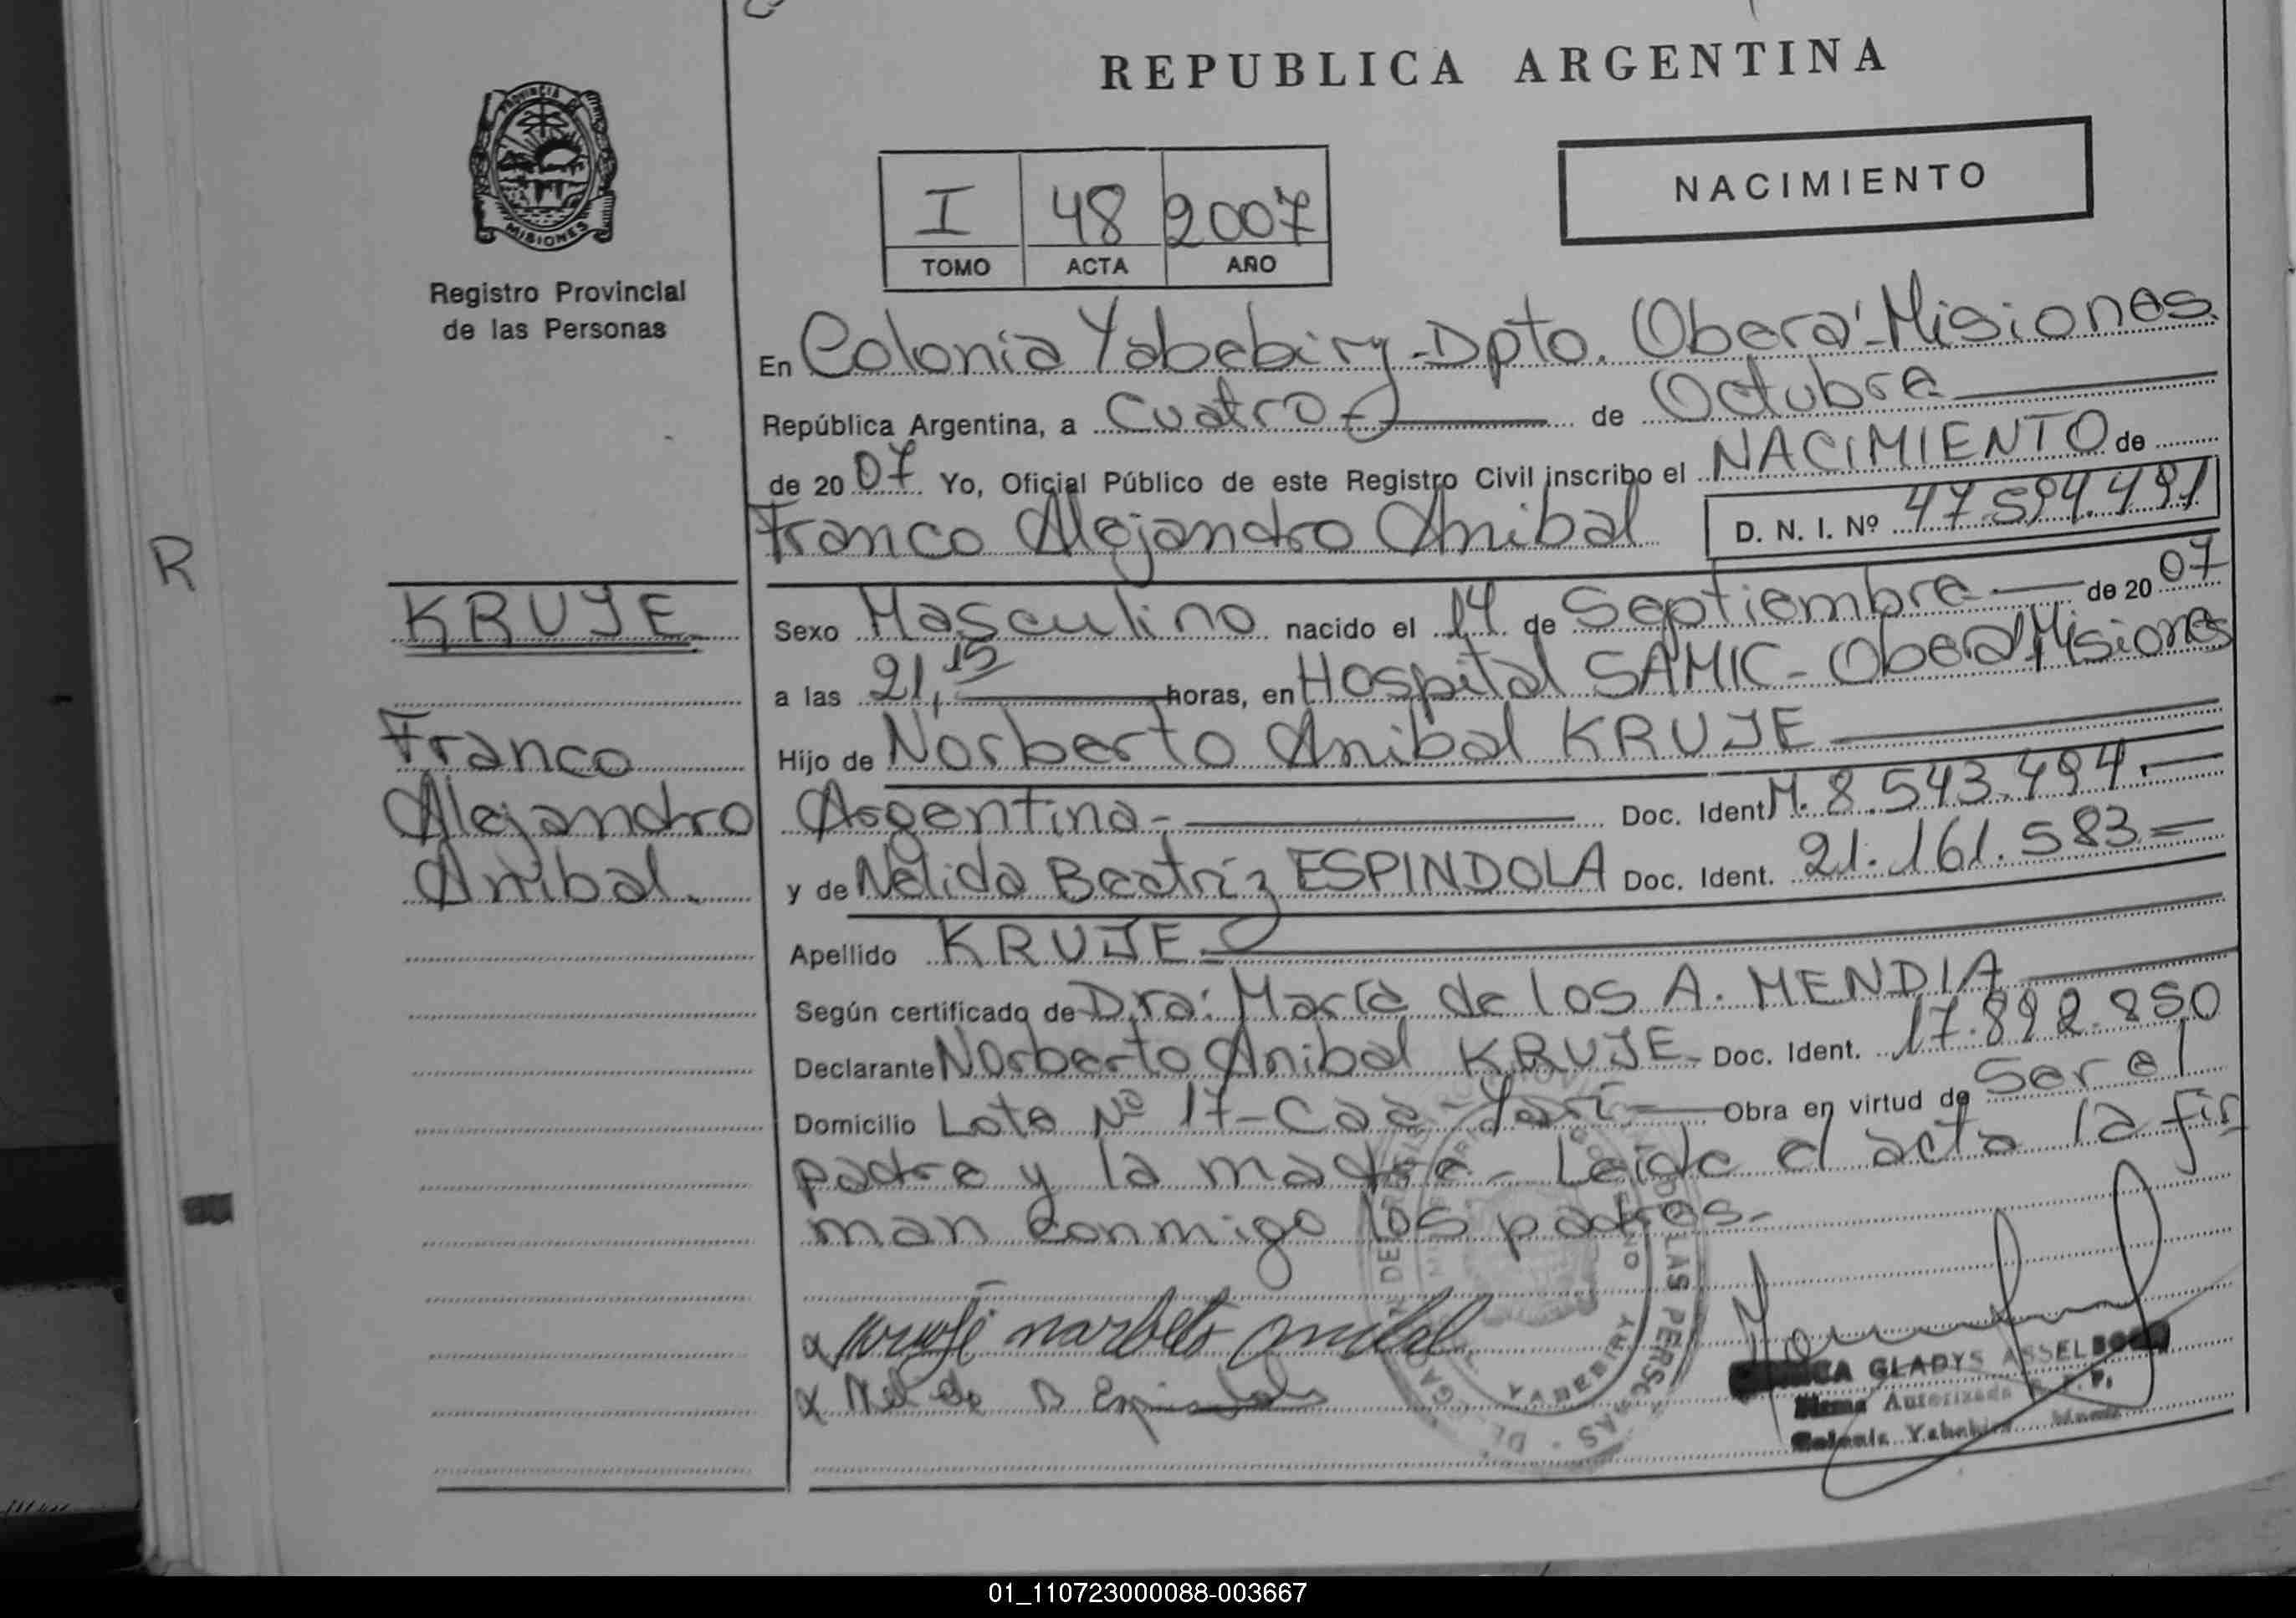 REPUBLICA ARGENTINA
PROVINCIA DE
MISIONES
Registro Provincial
de las Personas
I 48 2007
TOMO ACTA AÑO
NACIMIENTO
En Colonia Yabebiry-Dpto. Oberá-Misiones.
República Argentina, a Cuatro- de Octubre
de 2007 Yo, Oficial Público de este Registro Civil inscribo el NACIMIENTO de
Franco Alejandro Anibal D. N. I. Nº 47.594.491
R
KRUJE
Sexo Masculino nacido el 14 de Septiembre de 2007
a las 21,15 horas, en Hospital SAMIC-Oberá-Misiones
Franco
Alejandro
Anibal.
Hijo de Norberto Anibal KRUJE
Argentina- Doc. Ident. M. 8.543.494.
y de Nélida Beatríz ESPINDOLA Doc. Ident. 21.161.583=
Apellido KRUJE
Según certificado de Dra: María de los A. MENDIA
Declarante Norberto Anibal KRUJE- Doc. Ident. 17.892.850
Domicilio Lote Nº 17-Caá-Yarí- Obra en virtud de Ser el
padre y la madre- Leída el acta la fir
man conmigo los padres.-
x Kruje norbeto anibal
x Nelida B Espindola
DE LAS PERSONAS
YABEBIRY
GLADYS ASSELBORN
Firma Autorizada R. P. P.
Colonia Yabebiry
01_110723000088-003667